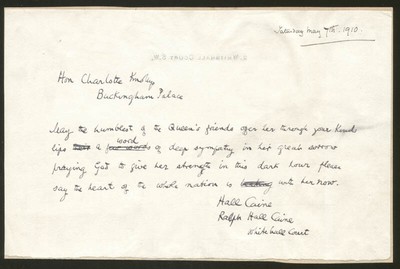 Saturday May 7th. 1910.
2, WHITEHALL COURT. S.W.
Hon Charlotte Knollys
Buckingham Palace
May the humblest of the Queen's friends offer her through your kind
word
lips a of deep sympathy in her great sorrow
praying God to give her strength in this dark hour please
say the heart of the whole nation is with her now.
Hall Caine
Ralph Hall Caine
Whitehall Court